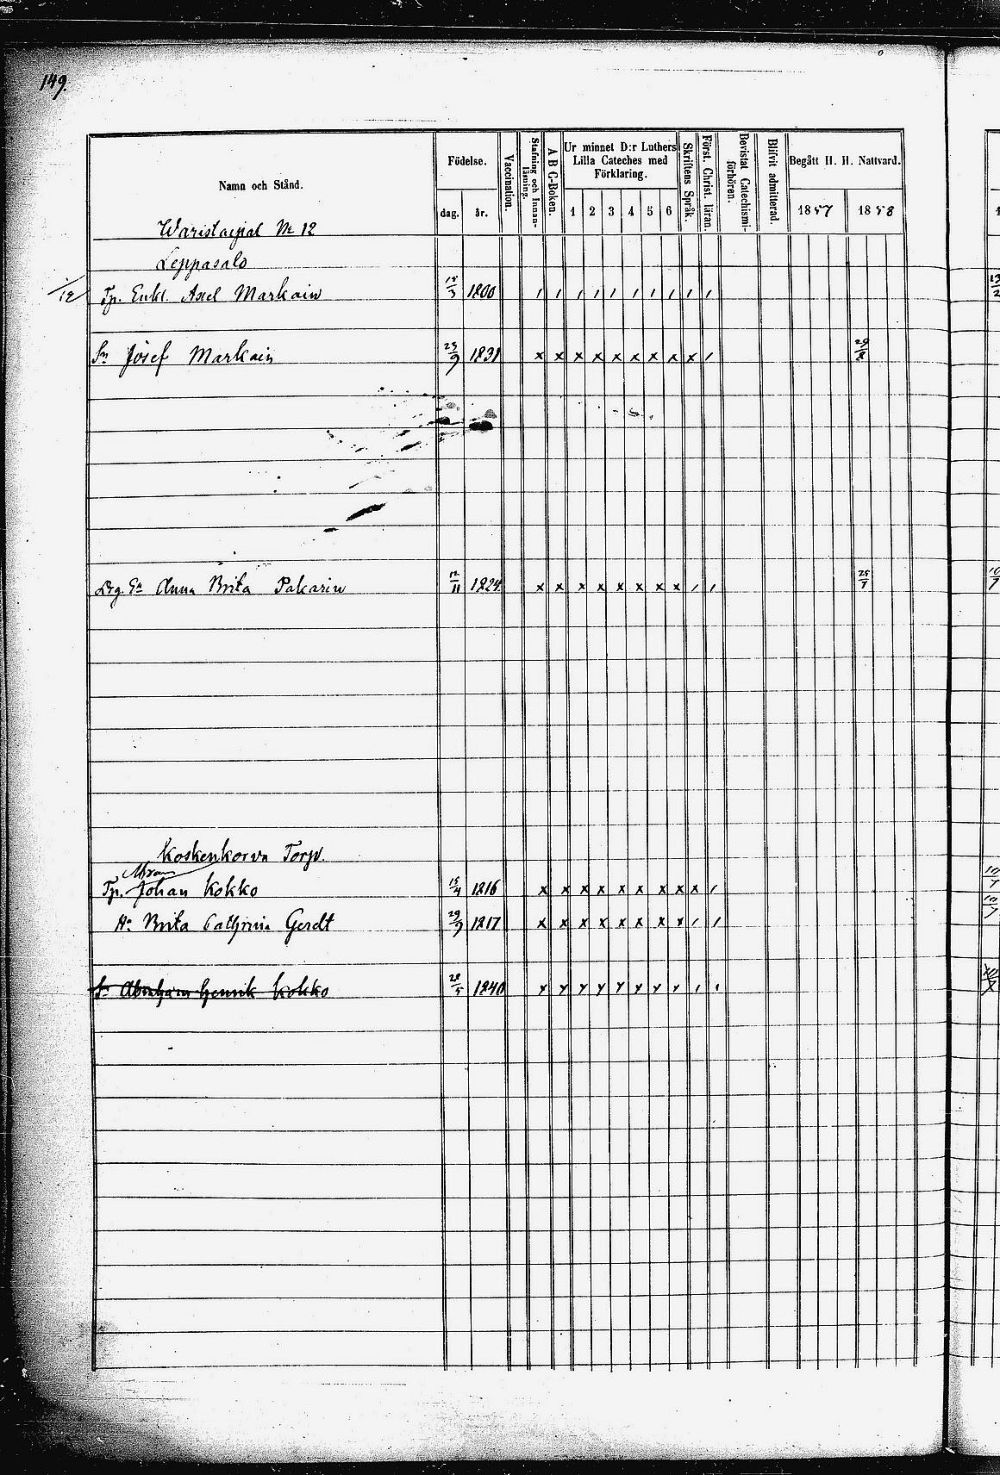 149.
Namn och Stånd.
Födelse.
dag. år.
Vaccination.
Stafning och Innan-läsning.
A B C-Boken.
Ur minnet D:r Luthers Lilla Cateches med Förklaring.
1 2 3 4 5 6
Skriftens Språk.
Först. Christ. läran.
Bevistat Catechismi-förhören.
Blifvit admitterad.
Begått H. H. Nattvard.
1857 1858
No 12
Leppasalo
Tp. Enkl. Axel Markain 15/3 1800 / / / / / / / / / /
Sn Josef Markain 23/9 1831 x x x x x x x x x /
Anna Brita Pakarin 12/11 x x x x x x x x / /
Koskenkorva Torp.
Tp. Johan Kokko 15/4 1816 x x x x x x x x x /
Hu Brita Cathrina Gerdt 29/9 1817 x x x x x x x x / /
Sn Abraham Henrik Kokko 28/5 1840 y y y y y y y y / /